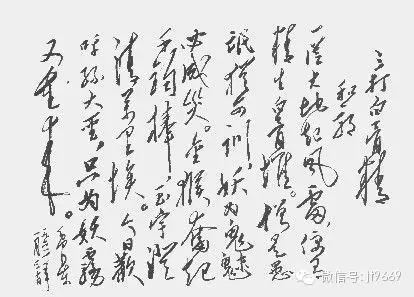 三打白骨精
一從大地起风雷，便有
精生白骨堆。僧是愚
氓犹可训，妖为鬼蜮
必成災。金猴奮起
千钧棒，玉宇澄
清万里埃。今日歡
呼孫大聖，只为妖霧
又重来。
微信号: